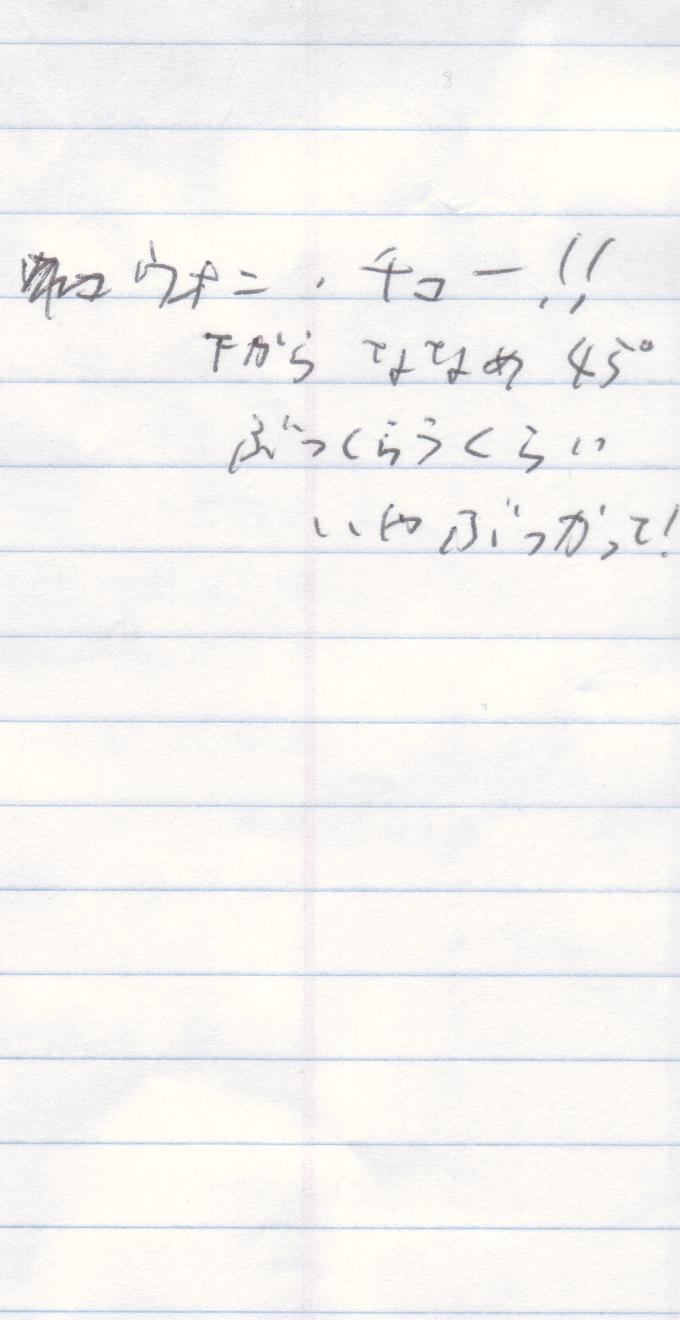 ウオニ・チュー!!
下から ななめ 45°
ぶっくらうくらい
いや ぶつかって!